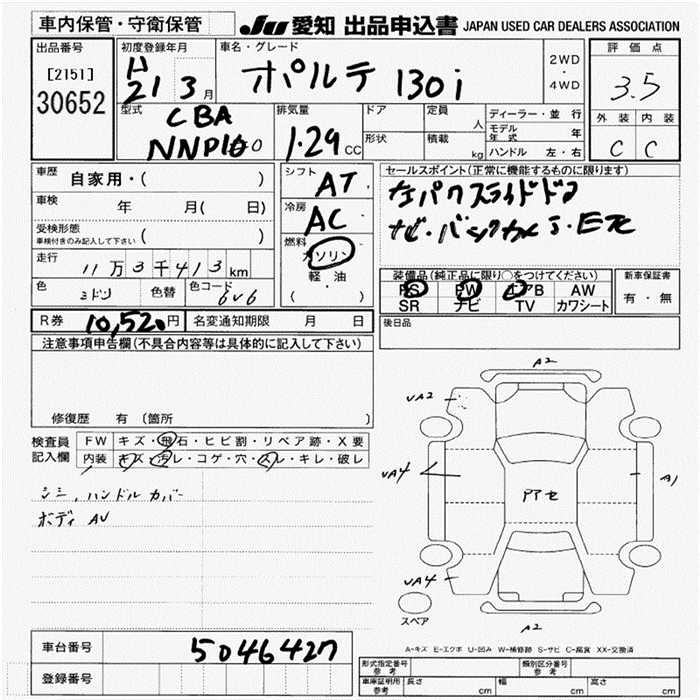 車内保管・守衛保管
JU 愛知 出品申込書 JAPAN USED CAR DEALERS ASSOCIATION
出品番号
[2151]
30652
初度登録年月
H
21 3月
車名・グレード
ポルテ 130i
2WD
・
4WD
評価点
3.5
外装 内装
C C
型式
CBA
NNP10
排気量
1.29cc
ドア
形状
定員
人
積載
kg
ディーラー・並行
モデル年式 年
ハンドル 左・右
車歴
自家用・( )
車検
年 月( 日)
受検形態
車検付きのみ記入して下さい ( )
走行
11万3千413km
色
ミドリ
色替
色コード
6V6
シフト
AT
冷房
AC
燃料
ガソリン
軽・油
( )
セールスポイント(正常に機能するものに限ります)
左パワスライドドア
ナビ・バックカメラ・ETC
装備品(純正品に限り○をつけてください)
PS PW エアB AW
SR ナビ TV カワシート
新車保証書
有・無
R券 10,520円
名変通知期限 月 日
後日品
注意事項申告欄(不具合内容等は具体的に記入して下さい)
修復歴 有 (箇所 )
検査員
記入欄
FW キズ・飛石・ヒビ割・リペア跡・X要
内装 キズ・汚レ・コゲ・穴・スレ・キレ・破レ
シミ、ハンドルカバー
ボディ AU
A2
UA2
UA4
A1
UA4
A2
スペア
A-キズ E-エクボ U-凹み W-補修跡 S-サビ C-腐食 XX-交換済
車台番号
5046427
登録番号
形式指定番号
参考
類別区分番号
参考
車庫証明用
参考
長さ cm
幅 cm
高さ cm